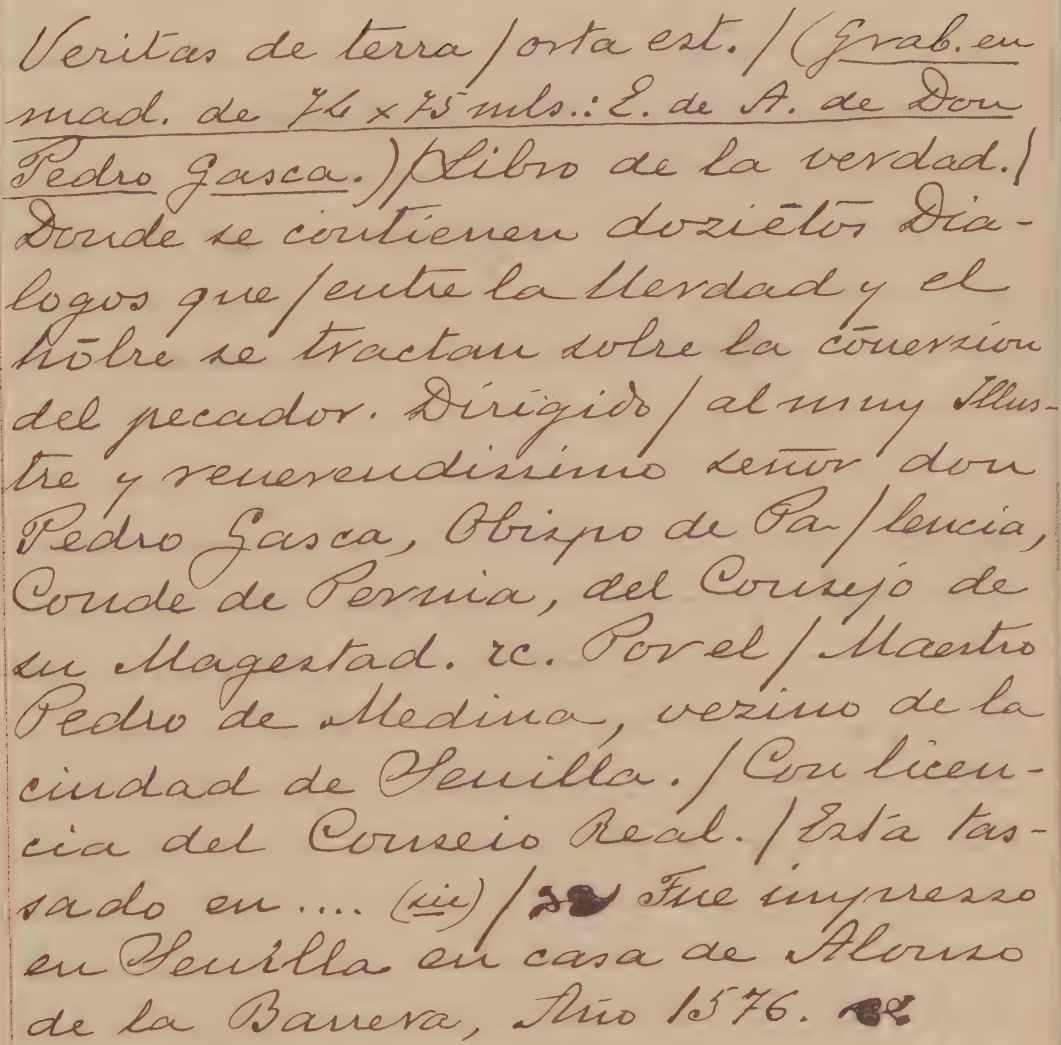 Veritas de terra / orta est. / (Grab. en
mad. de 74 x 75 mls.: E. de A. de Don
Pedro Gasca.) / Libro de la verdad. /
Donde se contienen doziētos Dia-
logos que / entre la Uerdad y el
hōbre se tractan sobre la cōuersion
del pecador. Dirigido / al muy Illus-
tre y reuerendissimo señor don
Pedro Gasca, Obispo de Pa- / lencia,
Conde de Pernia, del Consejo de
su Magestad. &c. Por el / Maestro
Pedro de Medina, vezino de la
ciudad de Seuilla. / Con licen-
cia del Conseio Real. / Esta tas-
sado en .... (sic) / Fue impresso
en Seuilla en casa de Alonso
de la Barrera, Año 1576.